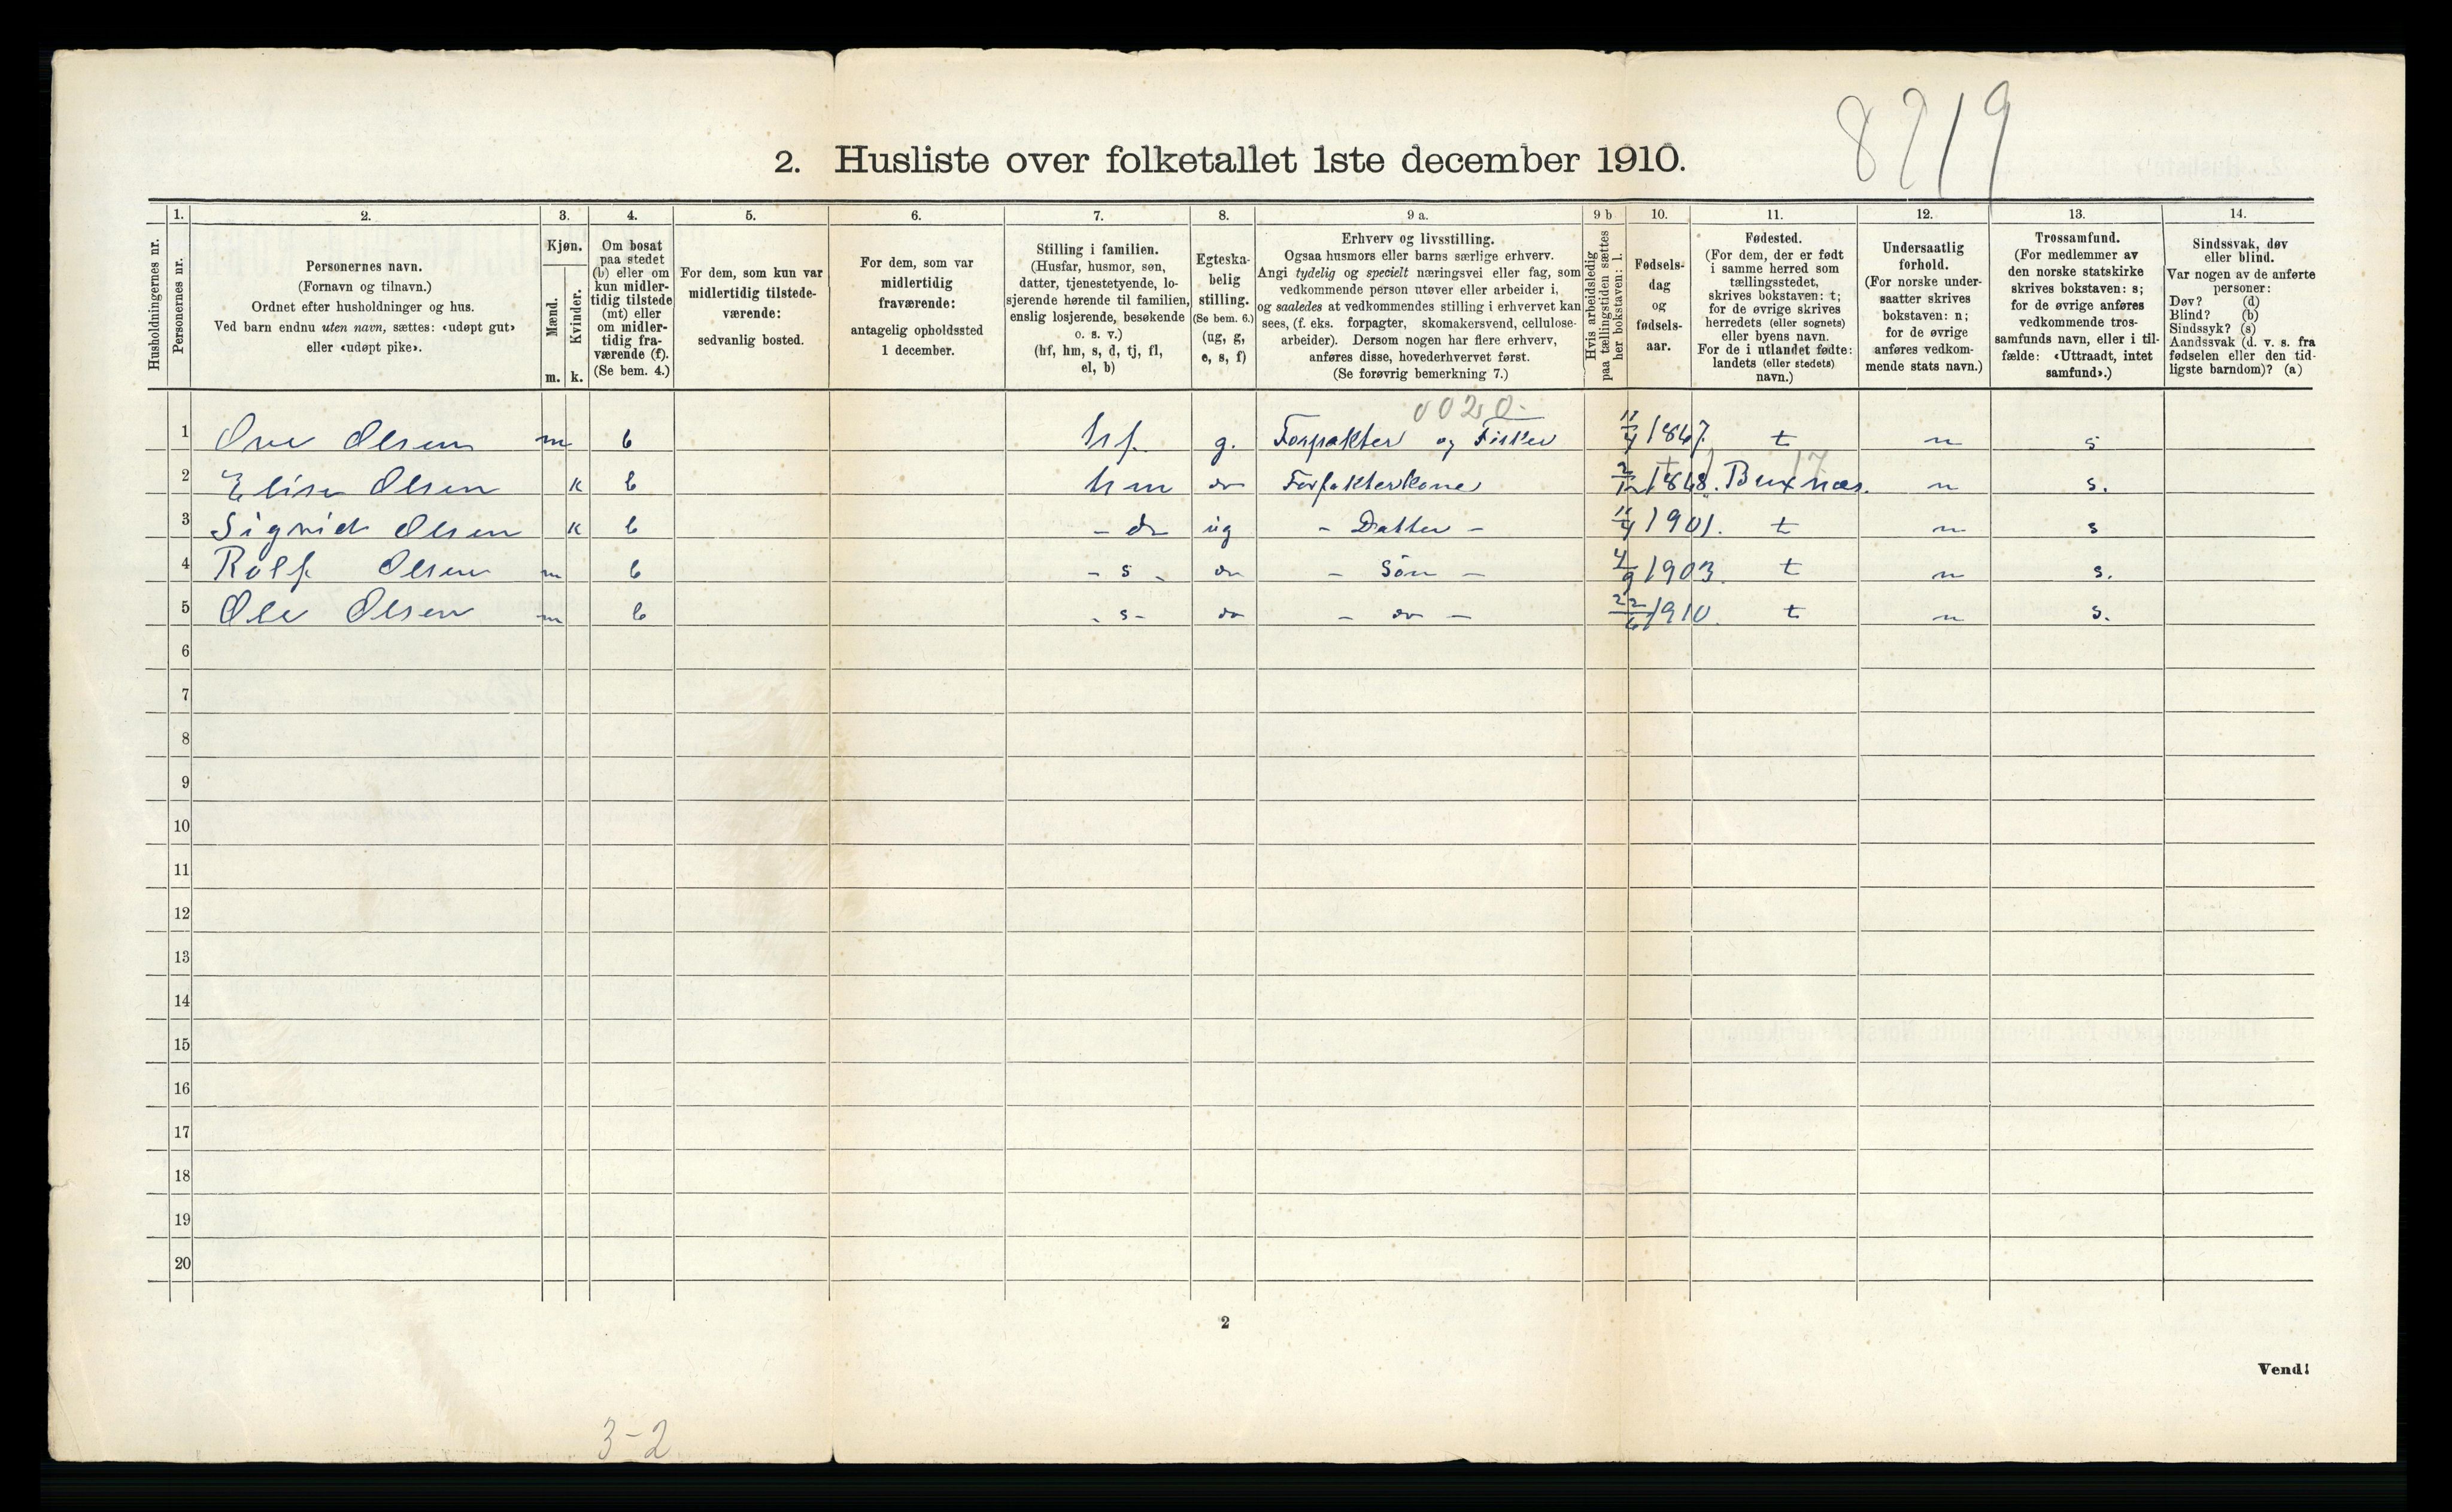 8219
2. Husliste over folketallet 1ste december 1910.
Husholdningernes nr.
1. Personernes nr.
2. Personernes navn. (Fornavn og tilnavn.) Ordnet efter husholdninger og hus. Ved barn endnu uten navn, sættes: «udøpt gut» eller «udøpt pike».
3. Kjøn. Mænd. m. Kvinder. k.
4. Om bosat paa stedet (b) eller om kun midlertidig tilstede (mt) eller om midlertidig fraværende (f). (Se bem. 4.)
5. For dem, som kun var midlertidig tilstedeværende: sedvanlig bosted.
6. For dem, som var midlertidig fraværende: antagelig opholdssted 1 december.
7. Stilling i familien. (Husfar, husmor, søn, datter, tjenestetyende, losjerende hørende til familien, enslig losjerende, besøkende o. s. v.) (hf, hm, s, d, tj, fl, el, b)
8. Egteskabelig stilling. (Se bem. 6.) (ug, g, e, s, f)
9 a. Erhverv og livsstilling. Ogsaa husmors eller barns særlige erhverv. Angi tydelig og specielt næringsvei eller fag, som vedkommende person utøver eller arbeider i, og saaledes at vedkommendes stilling i erhvervet kan sees, (f. eks. forpagter, skomakersvend, cellulosearbeider). Dersom nogen har flere erhverv, anføres disse, hovederhvervet først. (Se forøvrig bemerkning 7.)
9 b Hvis arbeidsledig paa tællingstiden sættes her bokstaven: l.
10. Fødselsdag og fødselsaar.
11. Fødested. (For dem, der er født i samme herred som tællingsstedet, skrives bokstaven: t; for de øvrige skrives herredets (eller sognets) eller byens navn. For de i utlandet fødte: landets (eller stedets) navn.)
12. Undersaatlig forhold. (For norske undersaatter skrives bokstaven: n; for de øvrige anføres vedkommende stats navn.)
13. Trossamfund. (For medlemmer av den norske statskirke skrives bokstaven: s; for de øvrige anføres vedkommende trossamfunds navn, eller i tilfælde: «Uttraadt, intet samfund».)
14. Sindssvak, døv eller blind. Var nogen av de anførte personer: Døv? (d) Blind? (b) Sindssyk? (s) Aandssvak (d. v. s. fra fødselen eller den tidligste barndom)? (a)
0020
1 Ove Olsen m b hf. g. Forpakter og Fisker 11/4 1867. t n s
17
2 Elise Olsen k b hm do Forpakterkone 2/12 1868. Buxnæs. n s.
3 Sigrid Olsen k b - d- ug - Datter - 11/4 1901. t n s
4 Rolf Olsen m b - s - do - Sön - 4/9 1903. t n s.
5 Ole Olsen m b - s - do - do - 22/6 1910. t n s.
6
7
8
9
10
11
12
13
14
15
16
17
18
19
20
2
Vend!
3-2